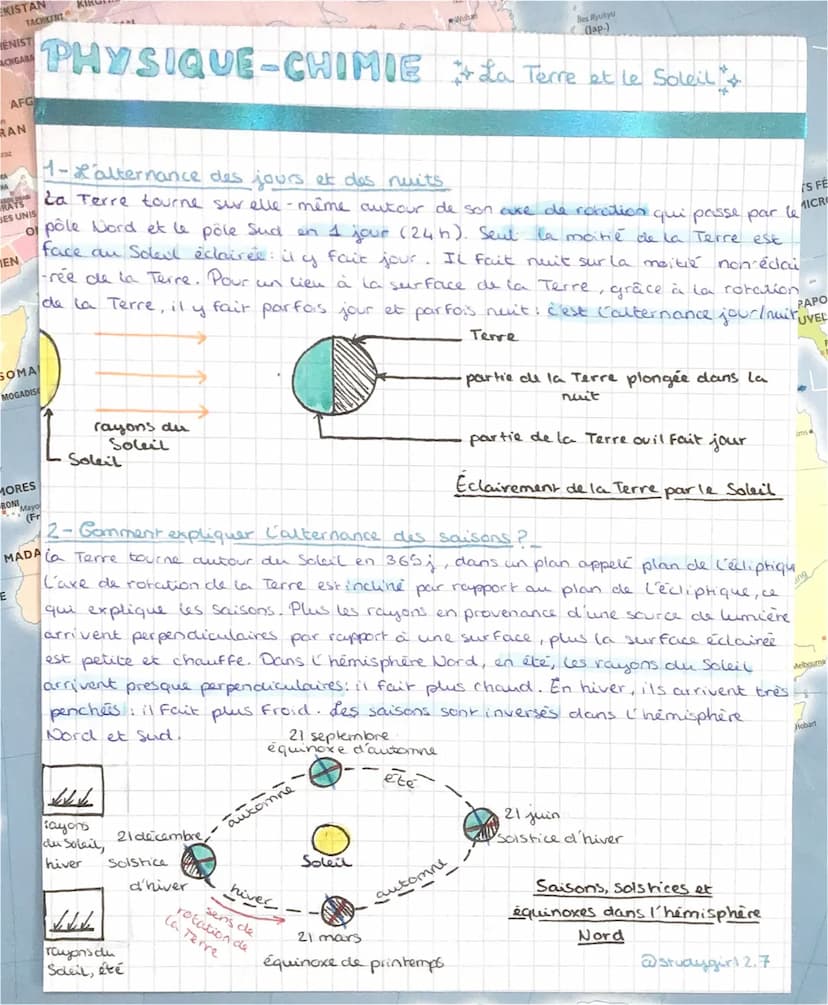 PHYSIQUE-CHIMIE La Terre et le Soleil
1- L'alternance des jours et des nuits
La Terre tourne sur elle-même autour de son axe de rotation qui passe par le
pôle Nord et le pôle Sud en 1 jour (24h). Seul la moitié de la Terre est
face au Soleil éclairée : il y fait jour. Il fait nuit sur la moitié non éclai
-rée de la Terre. Pour un lieu à la surface de la Terre, grâce à la rotation
de la Terre, il y fait parfois jour et parfois nuit : c'est l'alternance jour/nuit
Terre
partie de la Terre plongée dans la
nuit
partie de la Terre ou il fait jour
rayons du
Soleil
Soleil
Éclairement de la Terre par le Soleil
2- Comment expliquer l'alternance des saisons ?
La Terre tourne autour du Soleil en 365j, dans un plan appelé plan de l'écliptique
L'axe de rotation de la Terre est incliné par rapport au plan de l'écliptique, ce
qui explique les saisons. Plus les rayons en provenance d'une source de lumière
arrivent perpendiculaires par rapport à une surface, plus la surface éclairée
est petite et chauffe. Dans l'hémisphère Nord, en été, les rayons du Soleil
arrivent presque perpendiculaires : il fait plus chaud. En hiver, ils arrivent très
penchés : il fait plus froid. Les saisons sont inversés dans l'hémisphère
Nord et Sud.
21 septembre
équinoxe d'automne
automne
été
21 juin
solstice d'hiver
rayons
du Soleil,
hiver
21 décembre
solstice
d'hiver
Soleil
hiver
automne
sens de
rotation de
la Terre
21 mars
équinoxe de printemps
rayons du
Soleil, été
Saisons, solstices et
équinoxes dans l'hémisphère
Nord
@studygirl2.7
KISTAN
TACHKENT
Wuhan
Îles Ryukyu
(Jap.)
AFG
RAN
ES UNIS
IEN
SOMA
MOGADISC
MORES
RONI
Mayo
(Fr
MADA
S FÉ
MICR
PAPO
UVEL
Melbourne
Hobart